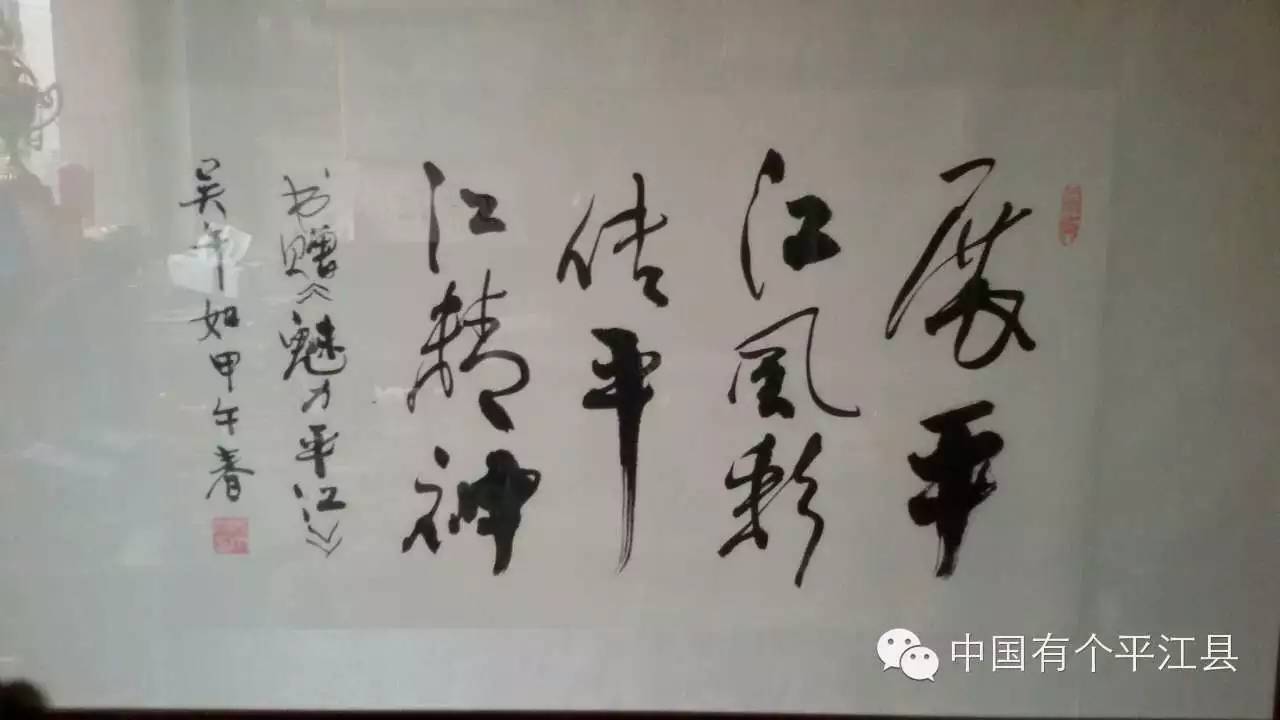 展平
江风彩
传平
江精神
书赠《魅力平江》
吴年如甲午春
中国有个平江县